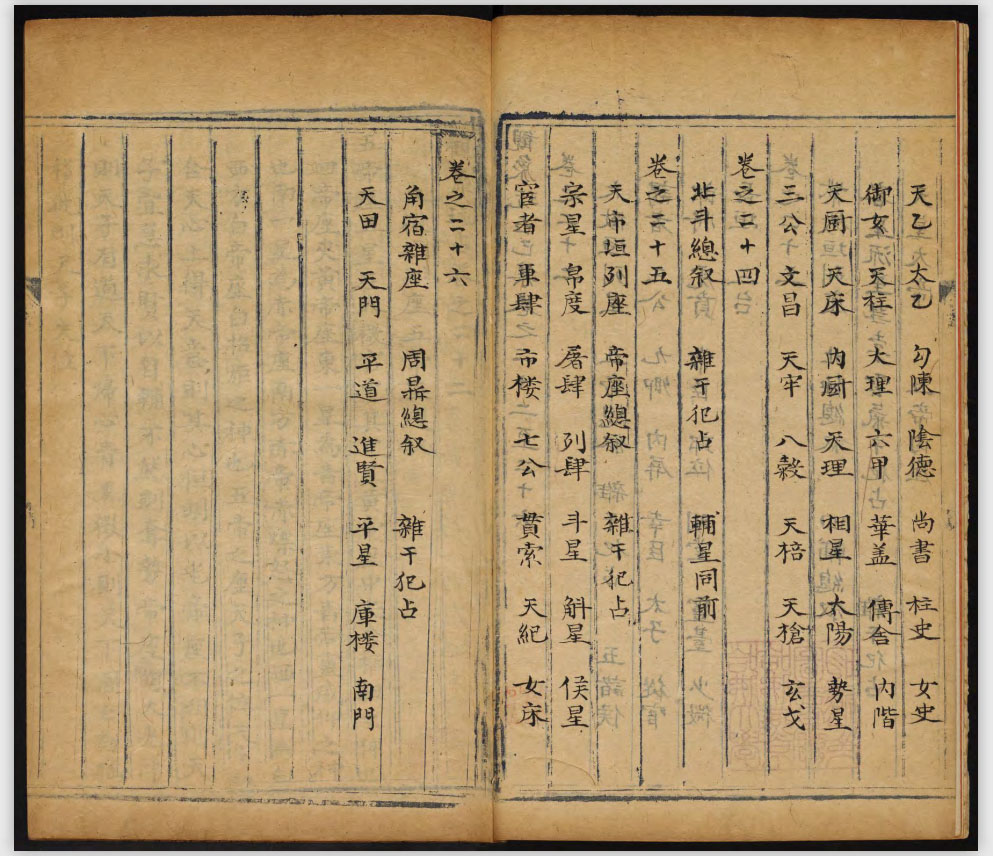 天乙 太乙 勾陳 陰德 尚書 柱史 女史
御女 天柱 大理 六甲 華盖 傳舍 内階
天厨 天床 内厨 天理 相星 太陽 勢星
三公 文昌 天牢 八榖 天棓 天槍 玄戈
卷之二十四
北斗總叙 雜干犯占 輔星同前
卷之二十五
天市垣列座 帝座總叙 雜干犯占
宗星 帛度 屠肆 列肆 斗星 斛星 侯星
宦者 車肆 市楼 七公 貫索 天紀 女床
卷之二十六
角宿雜座 周鼎總叙 雜干犯占
天田 天門 平道 進賢 平星 庫楼 南門